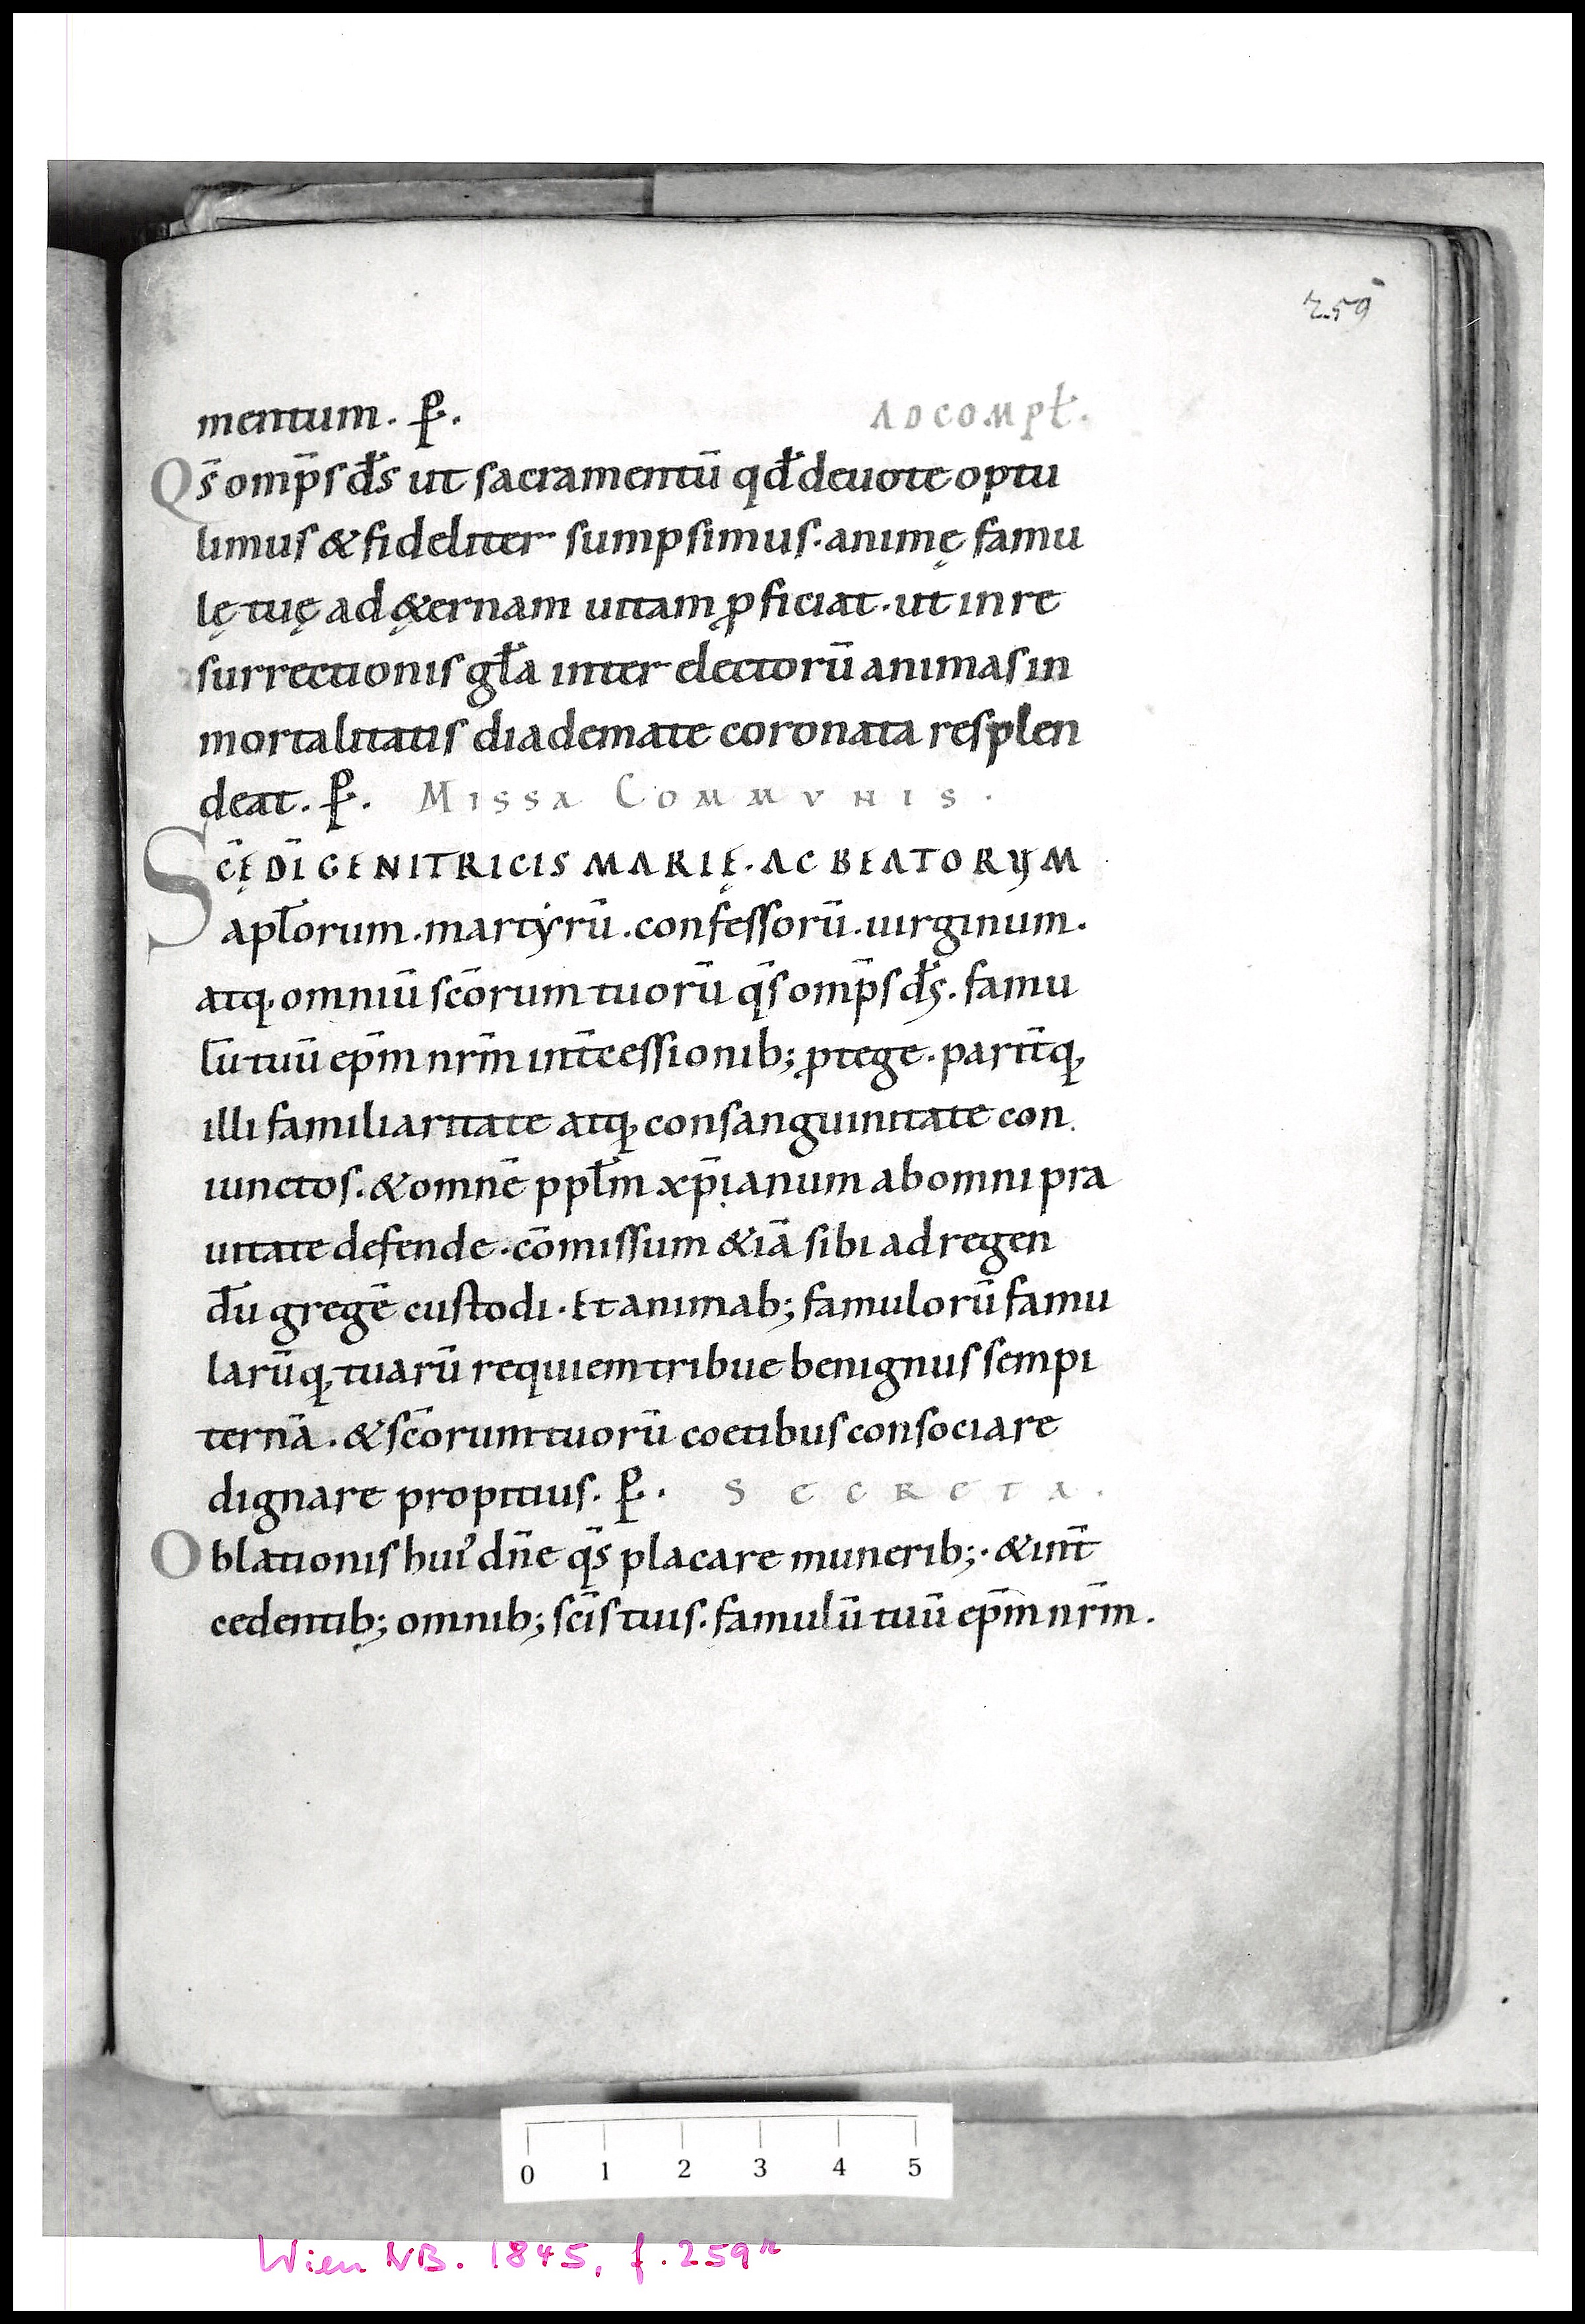 259
mentum. P̱. ADCOMPŁ.
Qs̄ omp̄s d̄s ut sacramentū qd̄ deuote optu
limus & fideliter sumpsimus. animę famu
lę tuę ad &ernam uitam ꝓficiat. ut in re
surrectionis gła inter electorū animas in
mortalitatis diademate coronata resplen
deat. P̱. MISSA COMMVNIS.
SC̄Ę DĪ GENITRICIS MARIĘ. AC BEATORUM
apłorum. martẏrū. confessorū. uirginum.
atq; omniū sc̄orum tuorū qs̄ omp̄s d̄s. famu
lū tuū ep̄m nr̄m int̄cessionib; ꝓtege. parit̄q;
illi familiaritate atq; consanguinitate con
iunctos. & omnē ppłm xp̄ianum ab omni pra
uitate defende. cōmissum &iā sibi ad regen
dū gregē custodi. Et animab; famulorū famu
larūq; tuarū requiem tribue benignus sempi
ternā. & sc̄orum tuorū coetibus consociare
dignare propitius. P̱. SECRETA.
Oblationis hui᾽ dn̄e qs̄ placare munerib;. & int̄
cedentib; omnib; sc̄is tuis. famulū tuū ep̄m nr̄m.
0 1 2 3 4 5
Wien NB. 1845, f. 259r